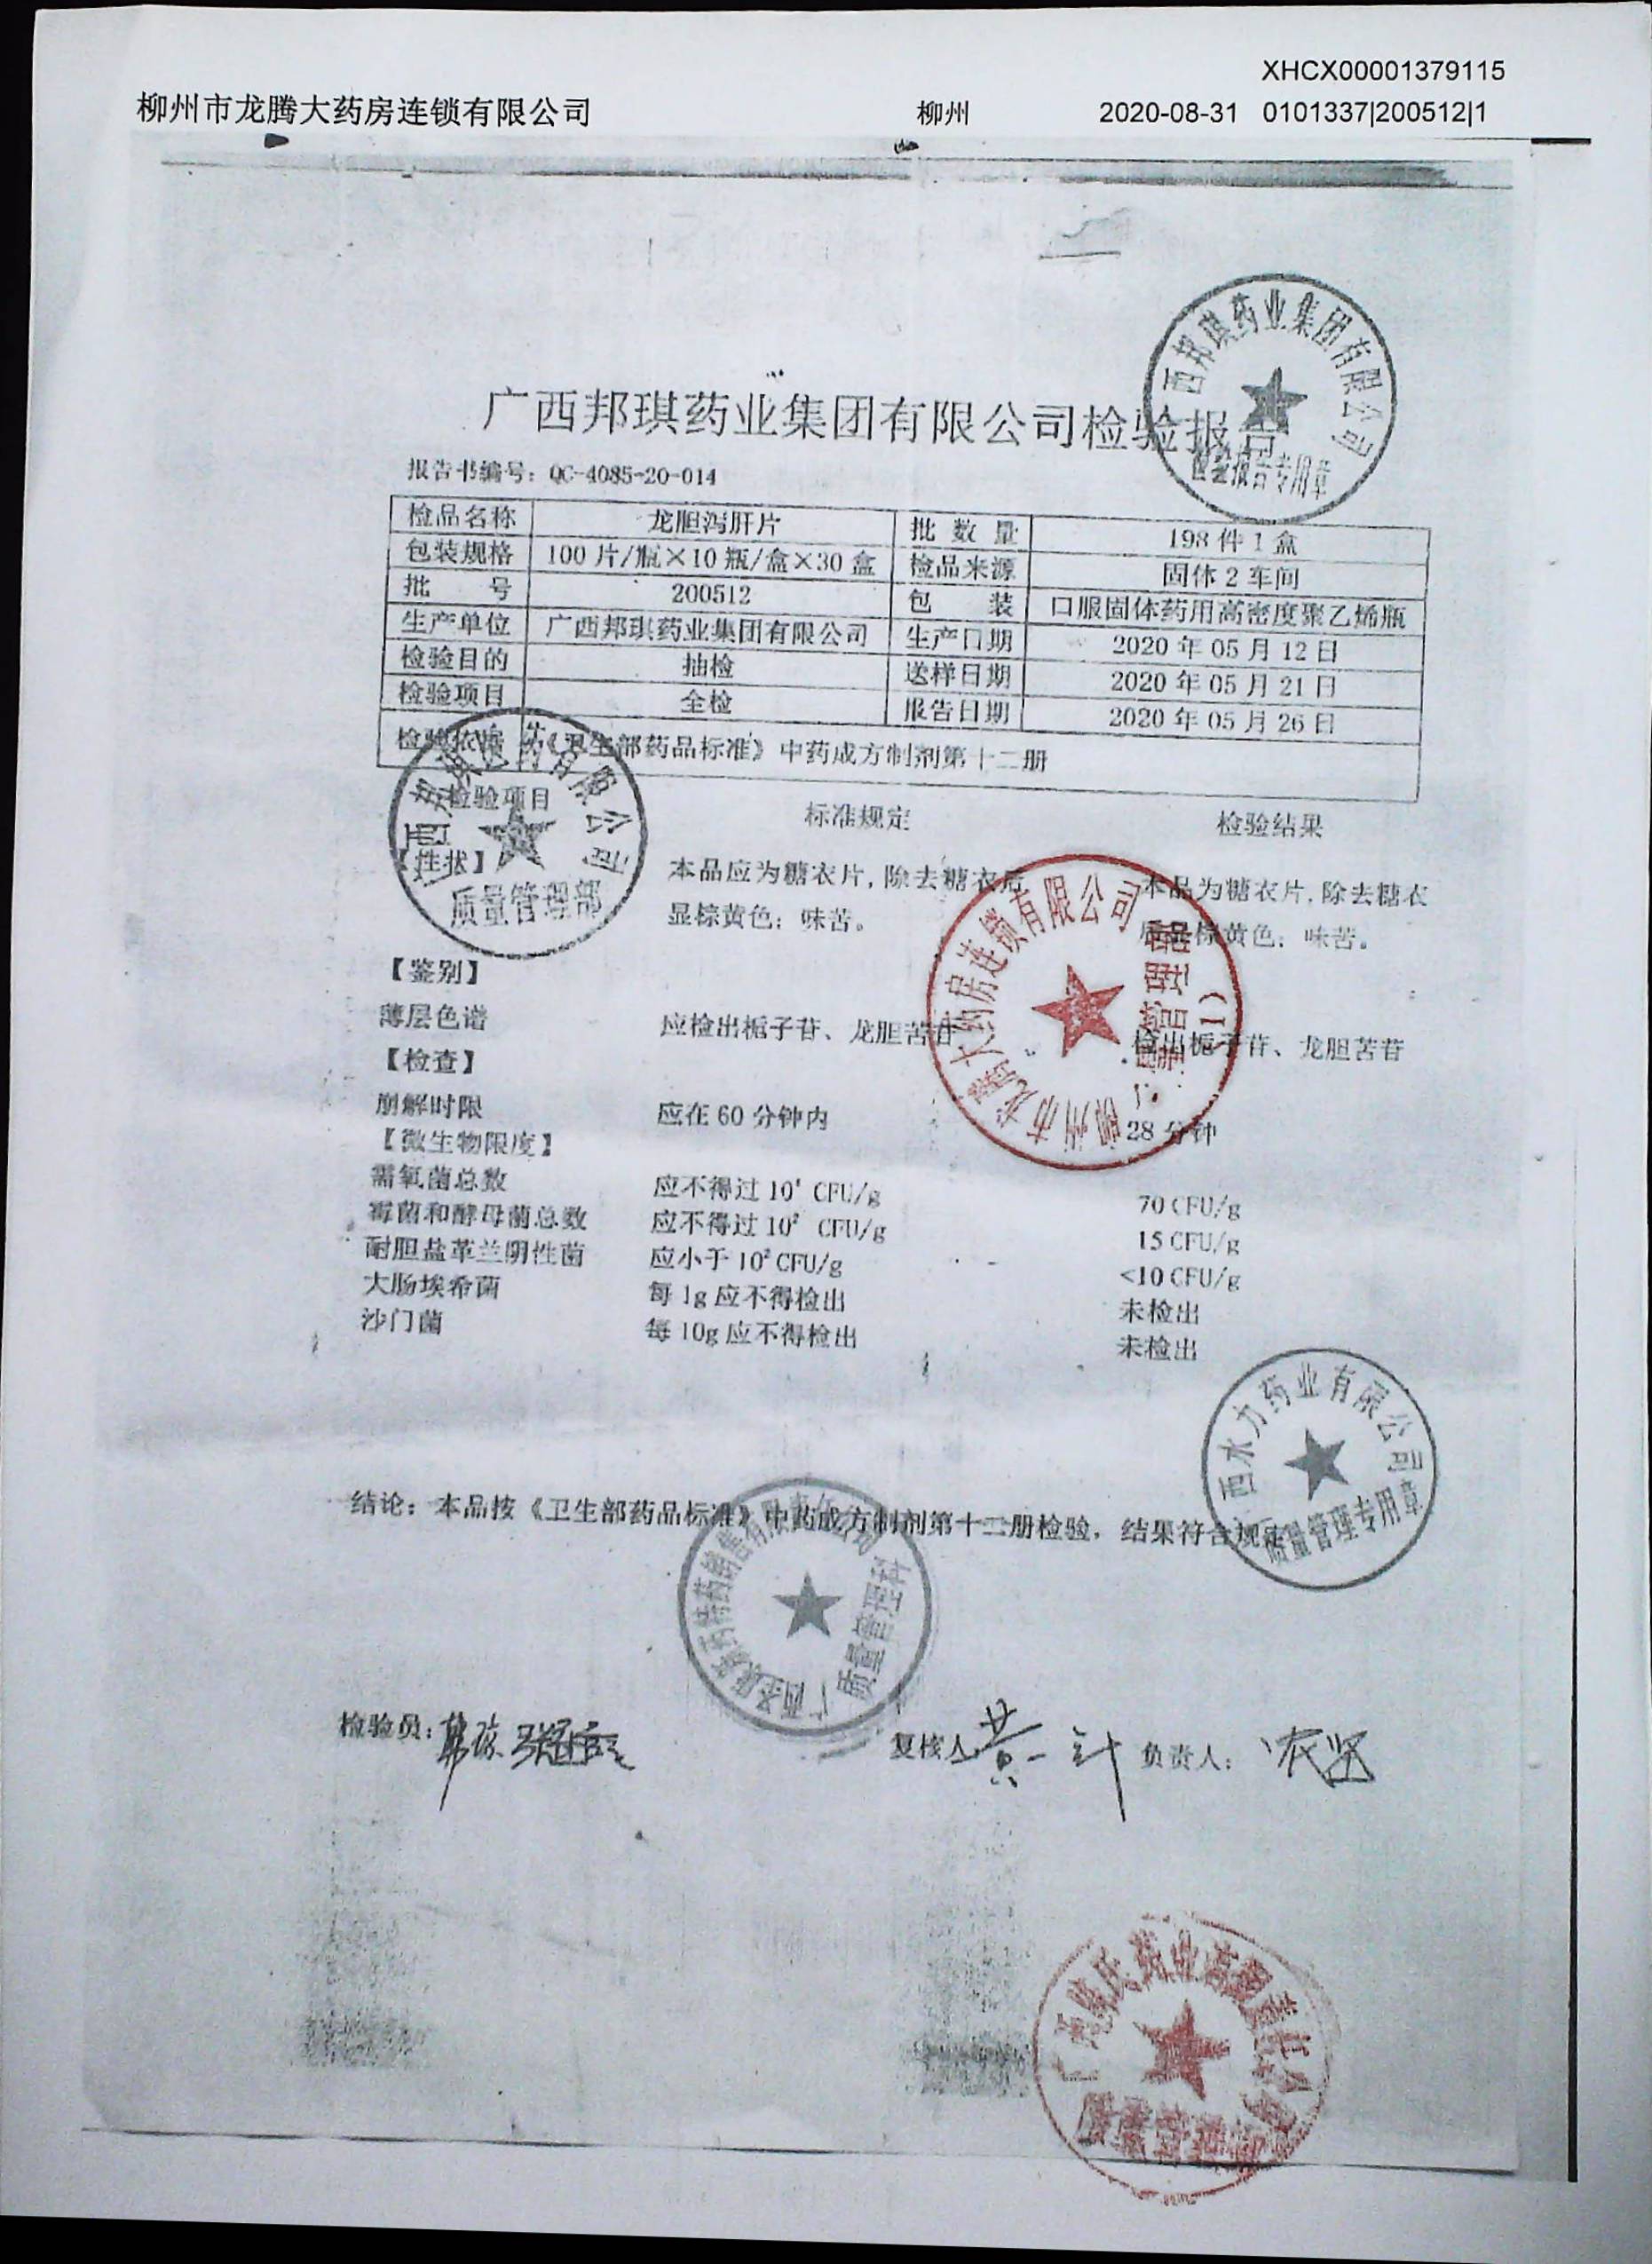 XHCX00001379115
柳州市龙腾大药房连锁有限公司 柳州 2020-08-31 0101337|200512|1
广西邦琪药业集团有限公司检验报告
西邦琪药业集团有限公司
检验报告专用章
报告书编号：QC-4085-20-014
检品名称 龙胆泻肝片 批数量 198件1盒
包装规格 100片/瓶×10瓶/盒×30盒 检品来源 固体2车间
批号 200512 包装 口服固体药用高密度聚乙烯瓶
生产单位 广西邦琪药业集团有限公司 生产日期 2020年05月12日
检验目的 抽检 送样日期 2020年05月21日
检验项目 全检 报告日期 2020年05月26日
检验依据 《卫生部药品标准》中药成方制剂第十二册
检验项目 标准规定 检验结果
有限公司
质量管理部
【性状】 本品应为糖衣片,除去糖衣后 本品为糖衣片,除去糖衣
显棕黄色；味苦。 后显棕黄色；味苦。
【鉴别】
薄层色谱 应检出栀子苷、龙胆苦苷 检出栀子苷、龙胆苦苷
柳州市龙腾大药房连锁有限公司
质量管理部
(1)
【检查】
崩解时限 应在60分钟内 28分钟
【微生物限度】
需氧菌总数 应不得过10⁴ CFU/g 70 CFU/g
霉菌和酵母菌总数 应不得过10² CFU/g 15 CFU/g
耐胆盐革兰阴性菌 应小于10² CFU/g <10 CFU/g
大肠埃希菌 每1g应不得检出 未检出
沙门菌 每10g应不得检出 未检出
西水力药业有限公司
质量管理专用章
结论：本品按《卫生部药品标准》中药成方制剂第十二册检验，结果符合规定
质量管理科
检验员： 复核人 黄 负责人：